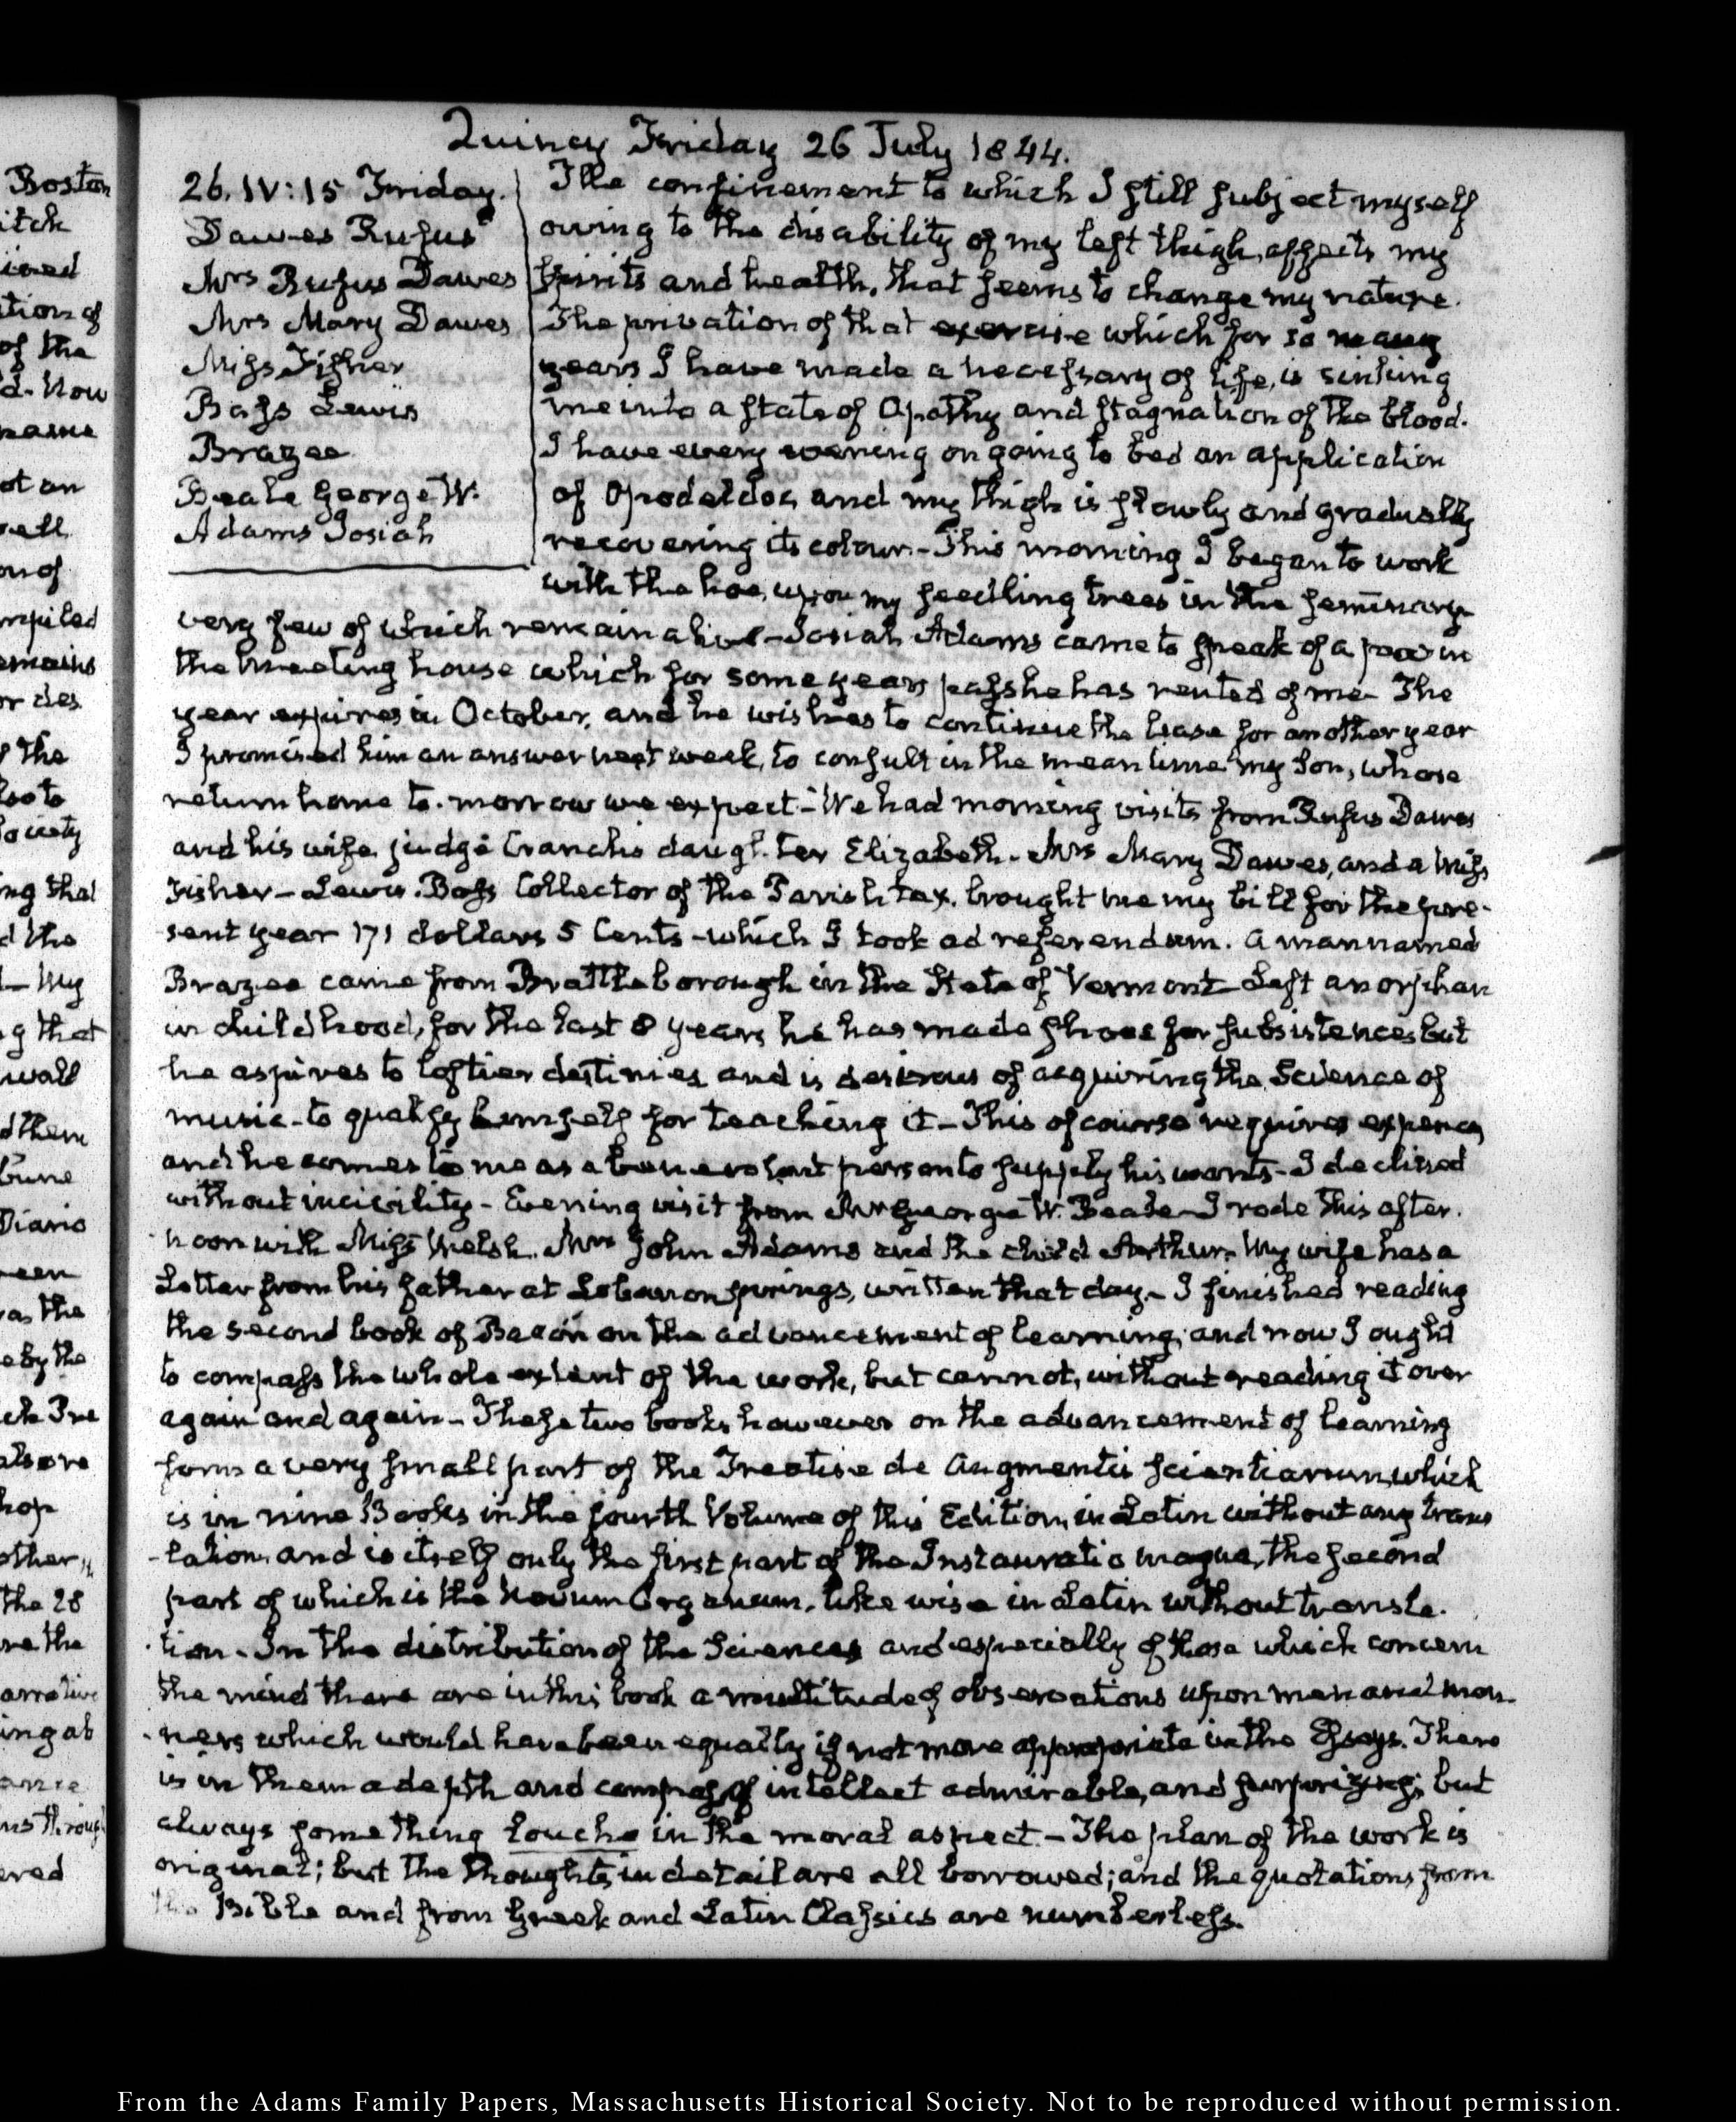 Quincy Friday 26 July 1844.
26. IV:15 Friday.
Dawes Rufus
Mrs Rufus Dawes
Mrs Mary Dawes
Miss Fisher
Bass Lewis
Brazee
Beale George W.
Adams Josiah
The confinement to which I still subject myself
owing to the disability of my left thigh, affects my
spirits and health, that seems to change my nature.
The privation of that exercise which for so many
years I have made a necessary of life, is sinking
me into a state of Apathy and stagnation of the blood.
I have every evening on going to bed an application
of Opodeldoc, and my thigh is slowly and gradually
recovering its colour.- This morning I began to work
with the hoe, upon my seedling trees in the seminary
very few of which remain alive - Josiah Adams came to speak of a pew in
the meeting house which for some years past he has rented of me - The
year expires in October, and he wishes to continue the lease for another year
I promised him an answer next week, to consult in the mean time my Son, whose
return home to-morrow we expect - We had morning visits from Rufus Dawes
and his wife, judge Cranch's daughter Elizabeth - Mrs Mary Dawes, and a Miss
Fisher - Lewis Bass Collector of the Parish tax, brought me my bill for the pre-
sent year 171 dollars 5 Cents - which I took ad referendum. A man named
Brazee came from Brattleborough in the State of Vermont - Left an orphan
in childhood, for the last 8 years he has made shoes for subsistence, but
he aspires to loftier destinies and is desirous of acquiring the Science of
music - to qualify himself for teaching it - This of course requires expence,
and he comes to me as a benevolent person to supply his wants - I declined
without incivility - Evening visit from Mr George W. Beale - I rode this after-
noon with Miss Welsh, Mrs John Adams and the child Arthur. My wife has a
Letter from his father at Lebanon springs, written that day - I finished reading
the second book of Bacon on the advancement of learning, and now I ought
to compass the whole extent of the work, but cannot, without reading it over
again and again - These two books however on the advancement of learning
form a very small part of the Treatise de Augmentis scientiarum, which
is in nine Books in the fourth Volume of this Edition, in Latin without any trans
-lation, and is itself only the first part of the Instauratio magna, the second
part of which is the Novum Organum, likewise in Latin without transla-
tion - In the distribution of the Sciences and especially of those which concern
the mind there are in this book a multitude of observations upon men and man-
-ners which would have been equally if not more appropriate in the Essays. There
is in them a depth and compass of intellect admirable, and surprizing; but
always something louche in the moral aspect - The plan of the work is
original; but the thoughts in detail are all borrowed; and the quotations from
the Bible and from Greek and Latin Classics are numberless.
From the Adams Family Papers, Massachusetts Historical Society. Not to be reproduced without permission.